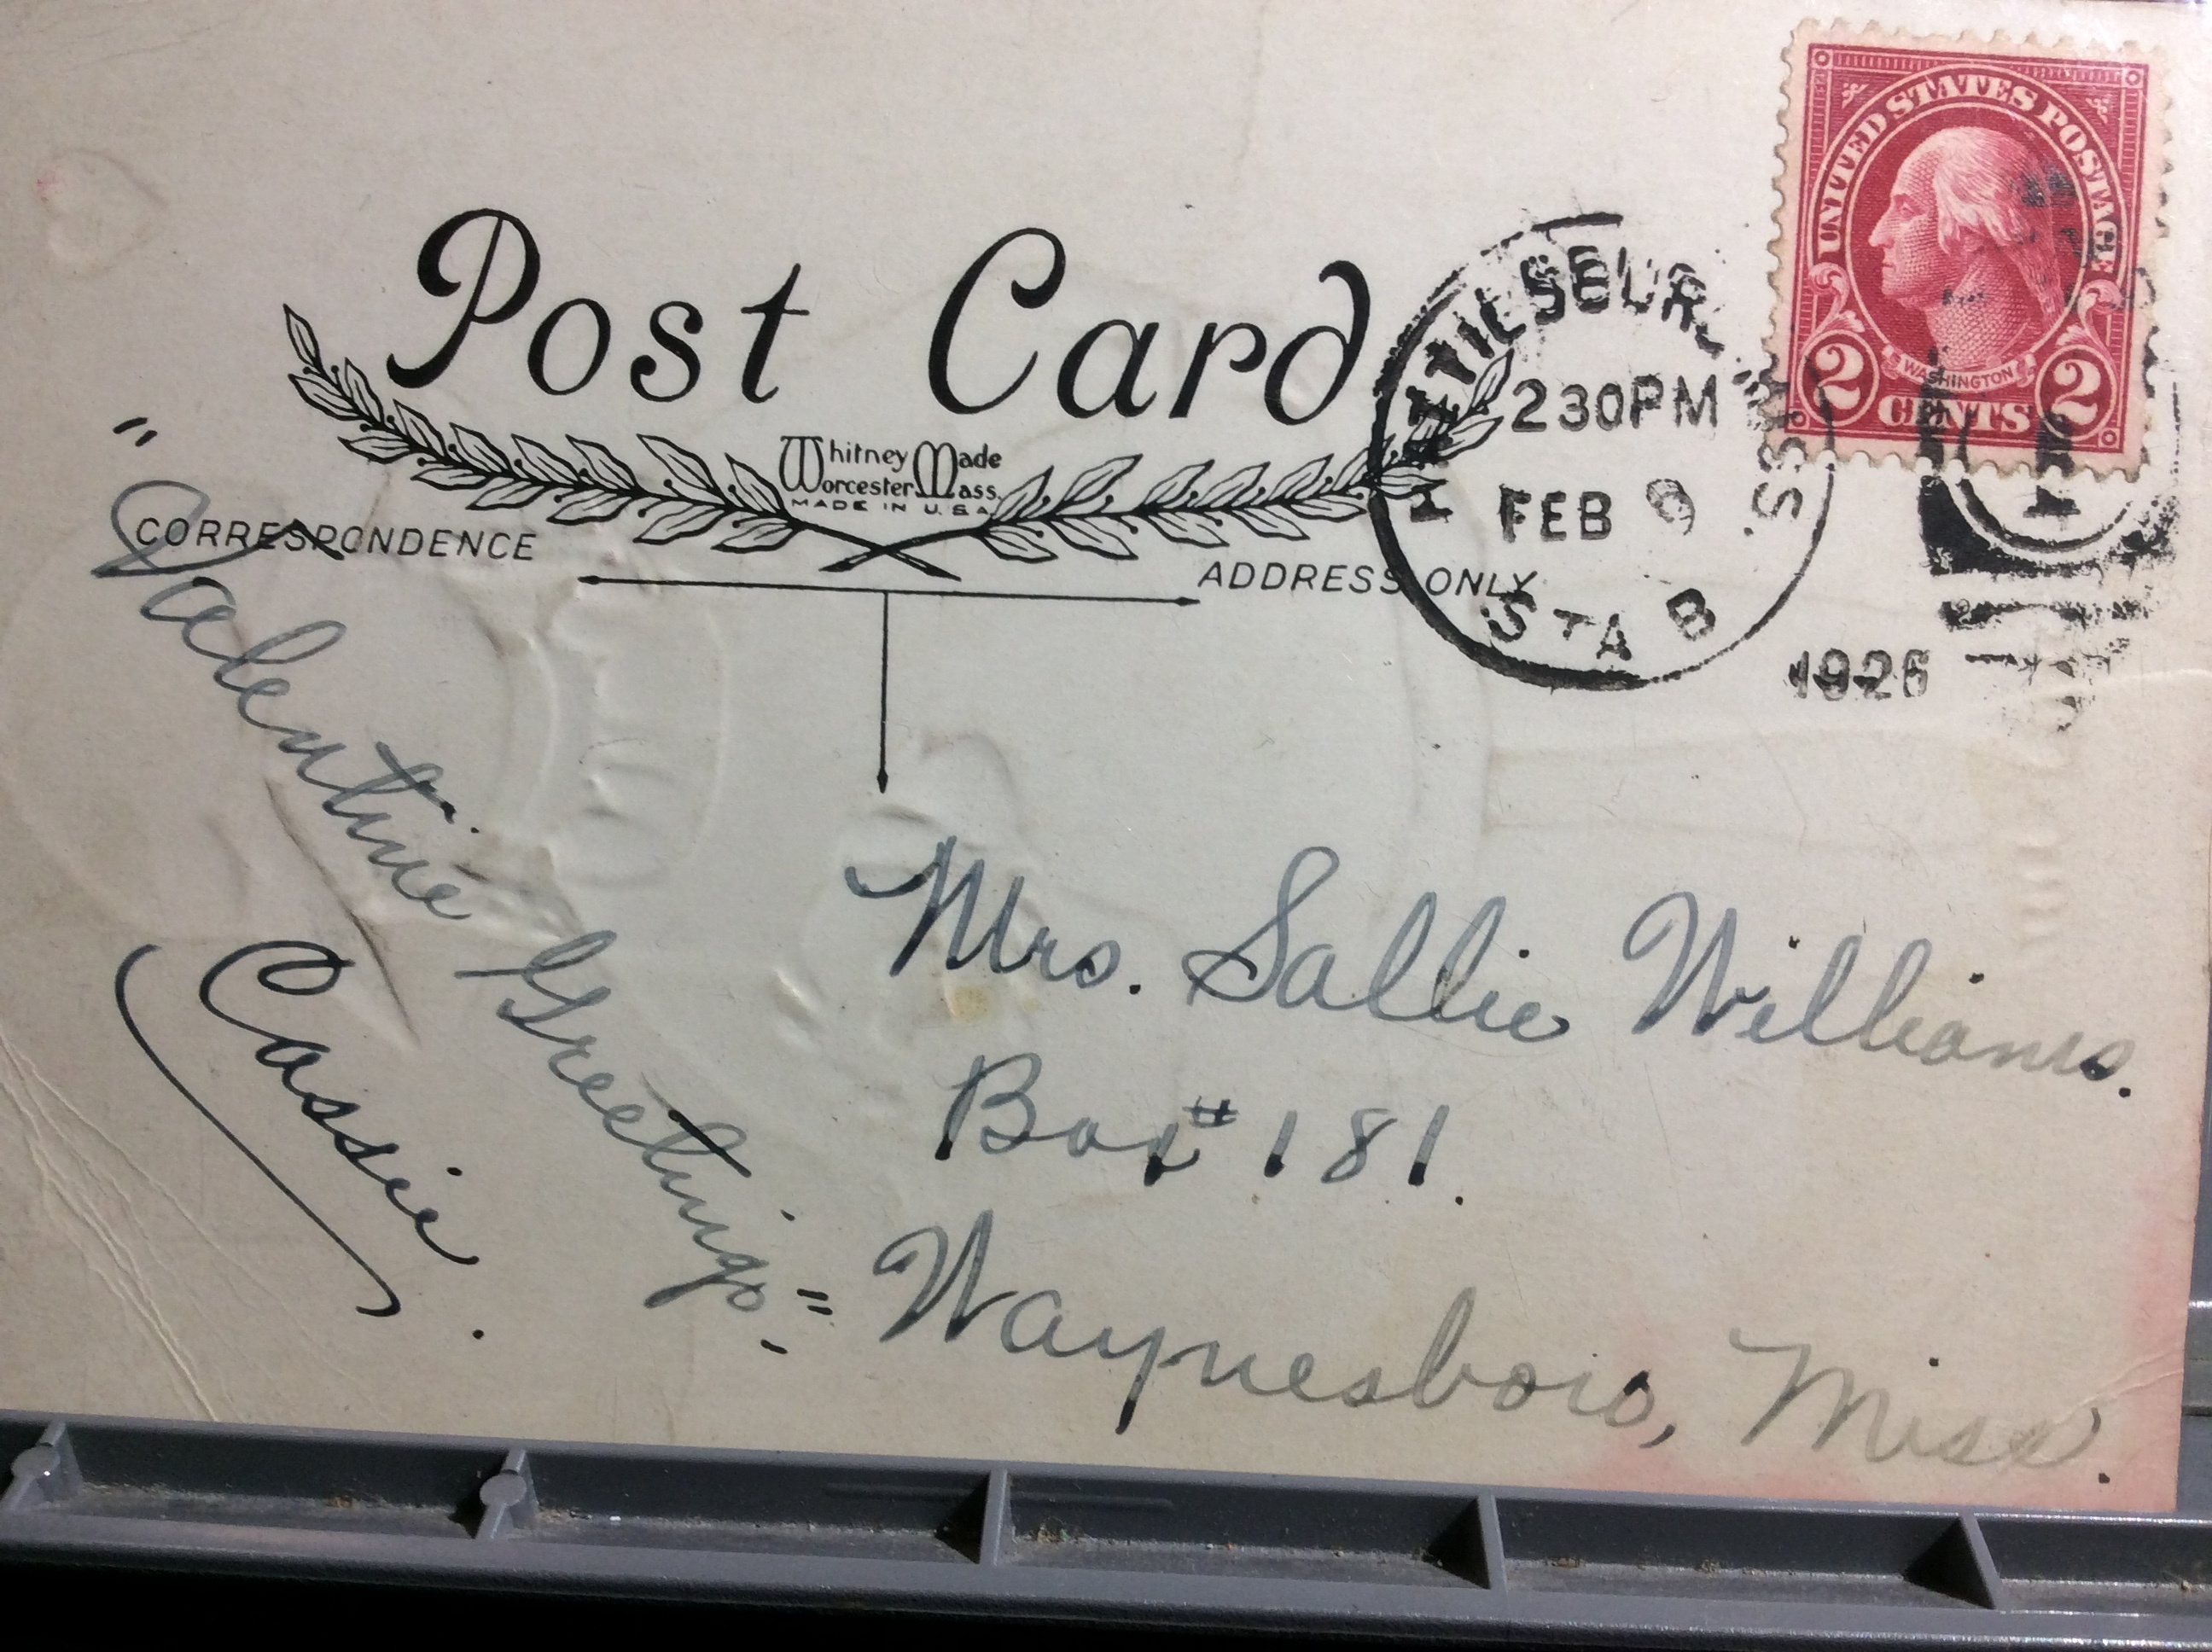 Post Card
Whitney Made
Worcester Mass.
MADE IN U.S.A.
CORRESPONDENCE
ADDRESS ONLY
HATTIESBURG MISS.
230PM
FEB 9
STA B
1926
UNITED STATES POSTAGE
WASHINGTON
2 CENTS 2
"Valentine Greetings"
Cassie.
Mrs. Sallie Williams.
Box # 181.
Waynesboro, Miss.